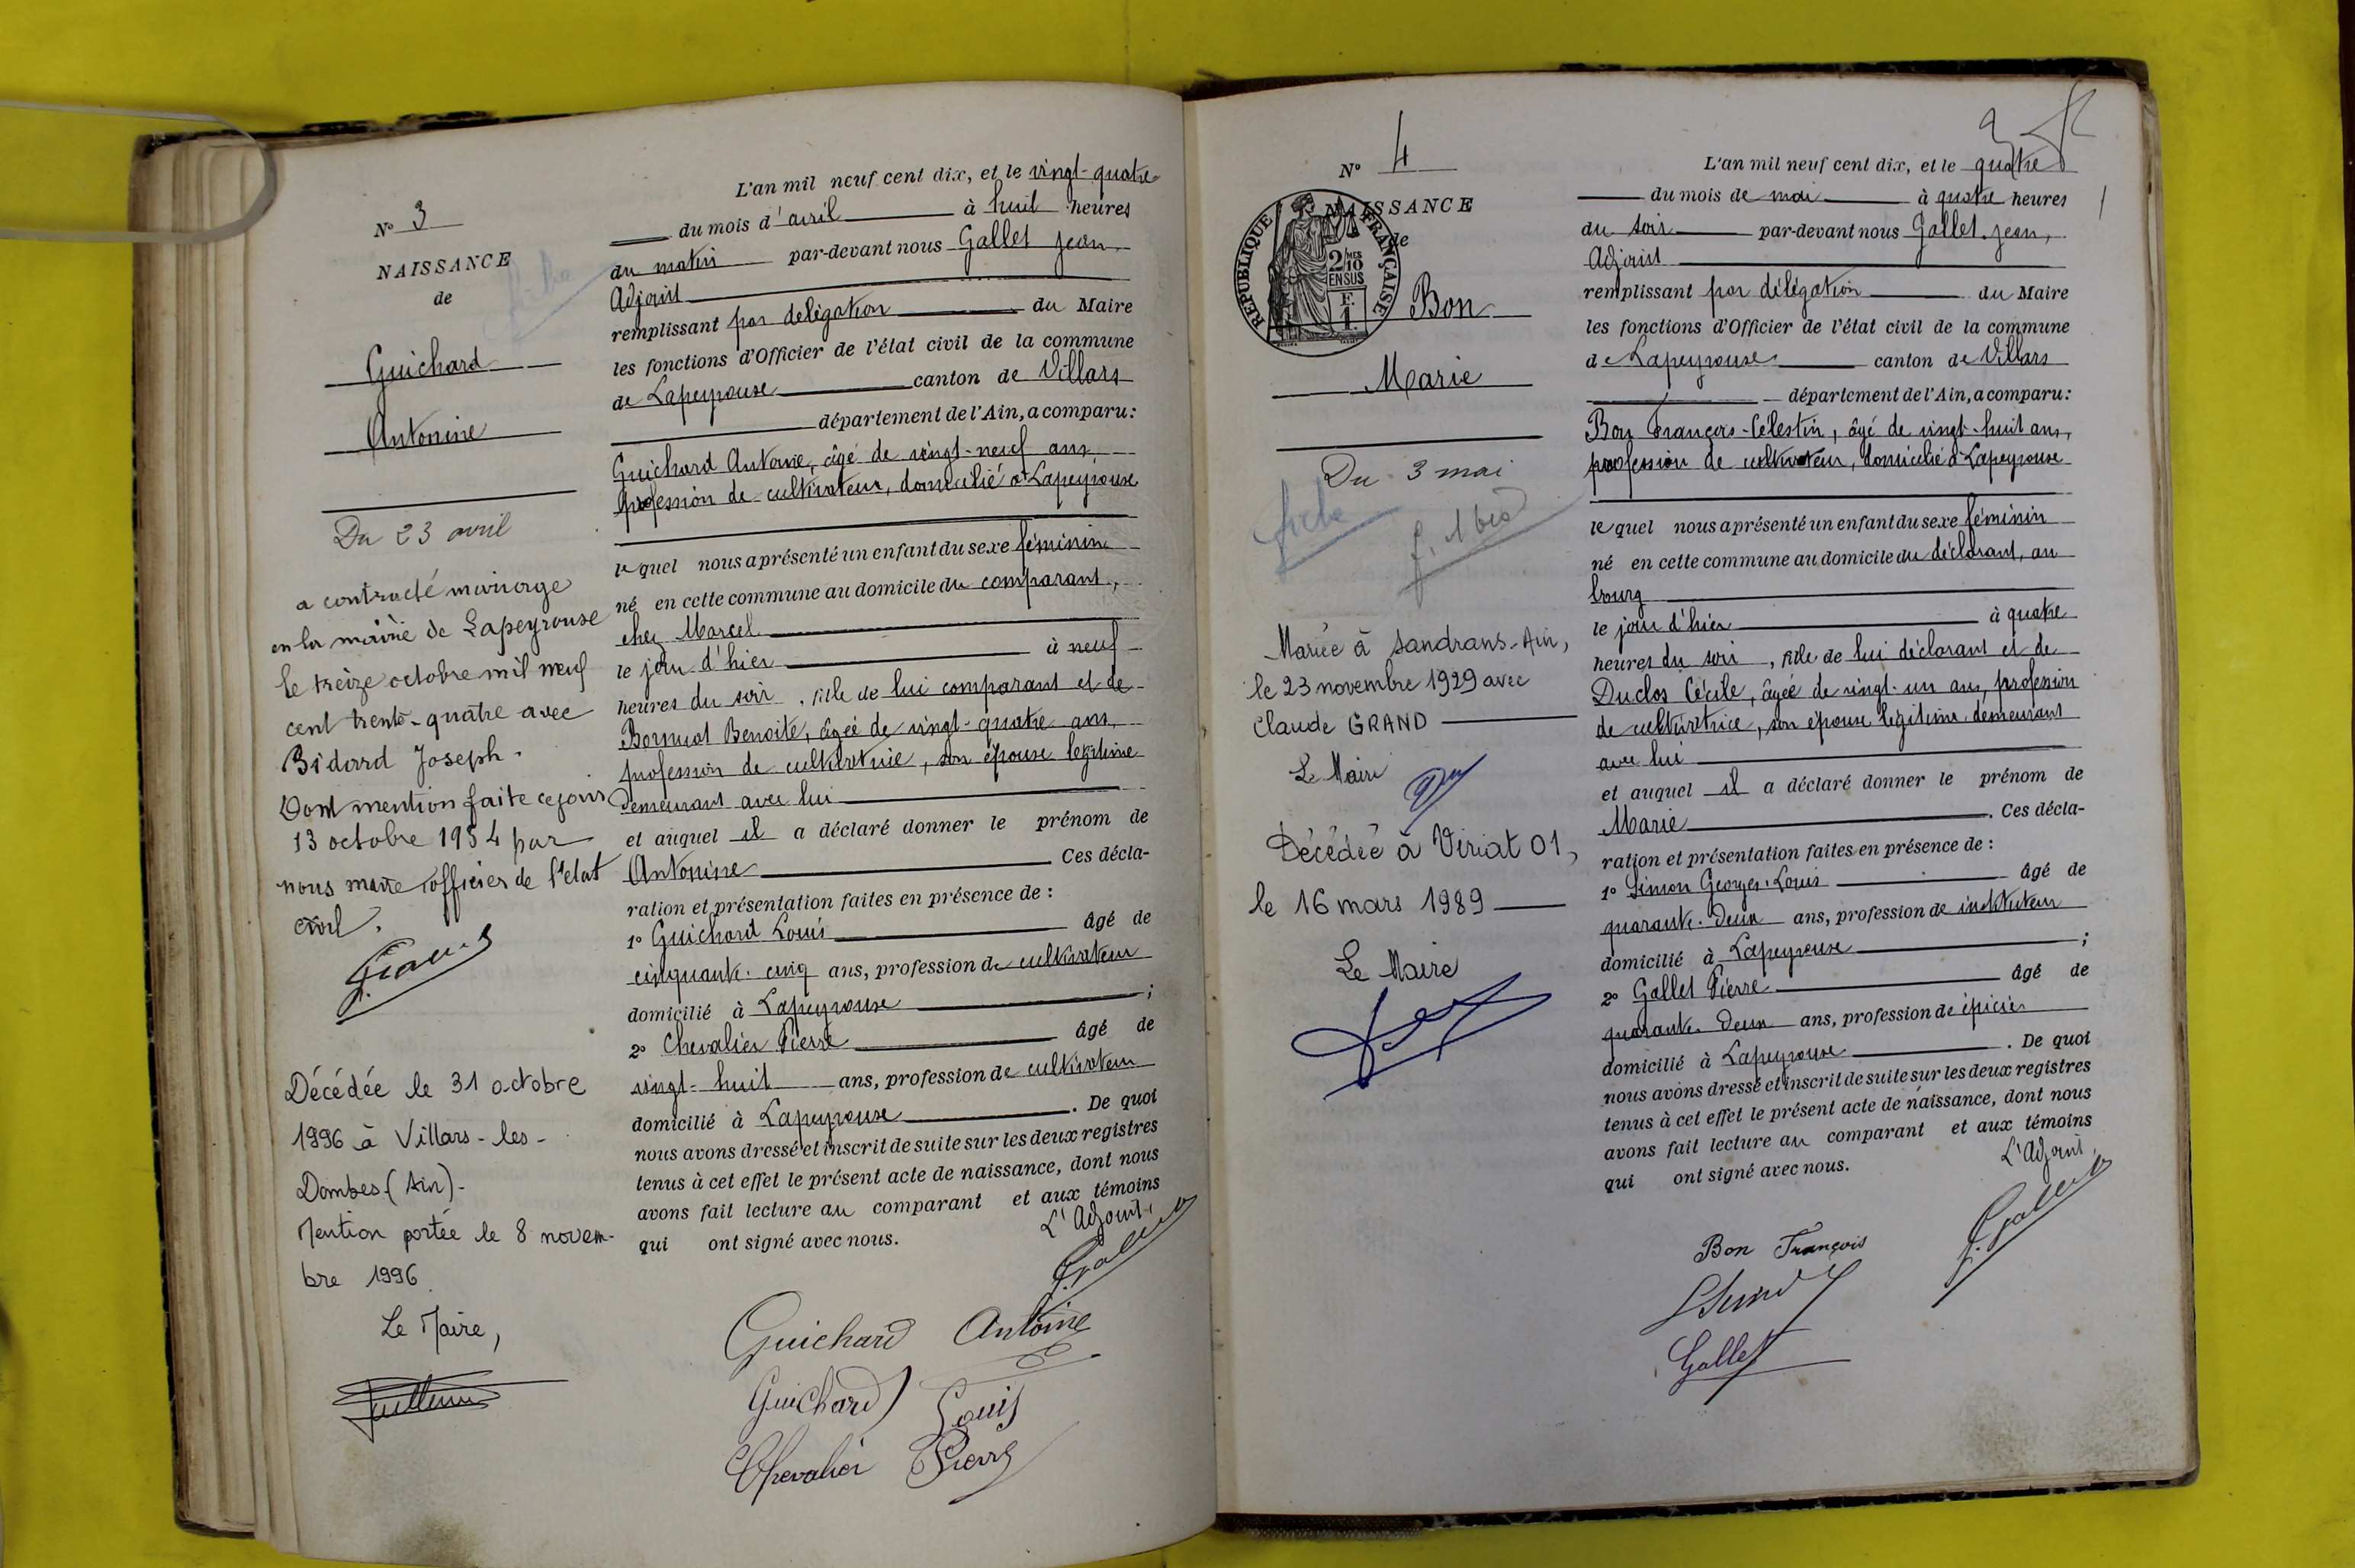 N° 3
NAISSANCE
de
Guichard
Antonine
Du 23 avril
a contracté mariage
en la mairie de Lapeyrouse
le treize octobre mil neuf
cent trente-quatre avec
Bidard Joseph.
Dont mention faite ce jour
13 octobre 1934 par
nous maire officier de l'état
civil.
Décédée le 31 octobre
1996 à Villars-les-
Dombes (Ain).
Mention portée le 8 novem-
bre 1996.
Le Maire,
L'an mil neuf cent dix, et le vingt-quatre
du mois d'avril à huit heures
du matin par-devant nous Gallet Jean,
Adjoint
remplissant par délégation du Maire
les fonctions d'Officier de l'état civil de la commune
de Lapeyrouse canton de Villars
département de l'Ain, a comparu:
Guichard Antoine, âgé de vingt-neuf ans,
profession de cultivateur, domicilié à Lapeyrouse
lequel nous a présenté un enfant du sexe féminin
né en cette commune au domicile du comparant,
chez Marcel
le jour d'hier à neuf
heures du soir, fille de lui comparant et de
Benoite, âgée de vingt-quatre ans,
profession de cultivatrice, son épouse légitime
demeurant avec lui
et auquel il a déclaré donner le prénom de
Antonine Ces décla-
ration et présentation faites en présence de :
1° Guichard Louis âgé de
cinquante-cinq ans, profession de cultivateur
domicilié à Lapeyrouse ;
2° Chevalier Pierre âgé de
vingt-huit ans, profession de cultivateur
domicilié à Lapeyrouse . De quoi
nous avons dressé et inscrit de suite sur les deux registres
tenus à cet effet le présent acte de naissance, dont nous
avons fait lecture au comparant et aux témoins
qui ont signé avec nous.
L'Adjoint,
J. Gallet
Guichard Antoine
Guichard Louis
Chevalier Pierre
N° 4
NAISSANCE
de
RÉPUBLIQUE FRANÇAISE
2/10 MES
EN SUS
F.
1.
Bon
Marie
Du 3 mai
fiche
Mariée à Sandrans-Ain,
le 23 novembre 1929 avec
Claude GRAND
Le Maire
Décédée à Viriat 01,
le 16 mars 1989
Le Maire
L'an mil neuf cent dix, et le quatre
du mois de mai à quatre heures
du soir par-devant nous Gallet Jean,
Adjoint
remplissant par délégation du Maire
les fonctions d'Officier de l'état civil de la commune
de Lapeyrouse canton de Villars
département de l'Ain, a comparu:
Bon François-Célestin, âgé de vingt-huit ans,
profession de cultivateur, domicilié à Lapeyrouse
lequel nous a présenté un enfant du sexe féminin
né en cette commune au domicile du déclarant, au
bourg
le jour d'hier à quatre
heures du soir, fille de lui déclarant et de
Duclos Cécile, âgée de vingt-un ans, profession
de cultivatrice, son épouse légitime demeurant
avec lui
et auquel il a déclaré donner le prénom de
Marie . Ces décla-
ration et présentation faites en présence de :
1° Simon Georges-Louis âgé de
quarante-deux ans, profession de instituteur
domicilié à Lapeyrouse ;
2° Gallet Pierre âgé de
quarante-deux ans, profession de épicier
domicilié à Lapeyrouse . De quoi
nous avons dressé et inscrit de suite sur les deux registres
tenus à cet effet le présent acte de naissance, dont nous
avons fait lecture au comparant et aux témoins
qui ont signé avec nous.
L'Adjoint,
J. Gallet
Bon François
Gallet